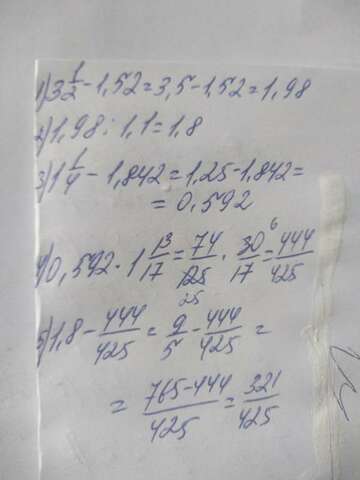 1) 3 1/2 - 1,52 = 3,5 - 1,52 = 1,98
2) 1,98 : 1,1 = 1,8
3) 1 1/4 - 1,842 = 1,25 - 1,842 =
= 0,592
4) 0,592 · 1 13/17 = 74/125 · 30/17 = 444/425
25 6
5) 1,8 - 444/425 = 9/5 - 444/425 =
= 765-444/425 = 321/425